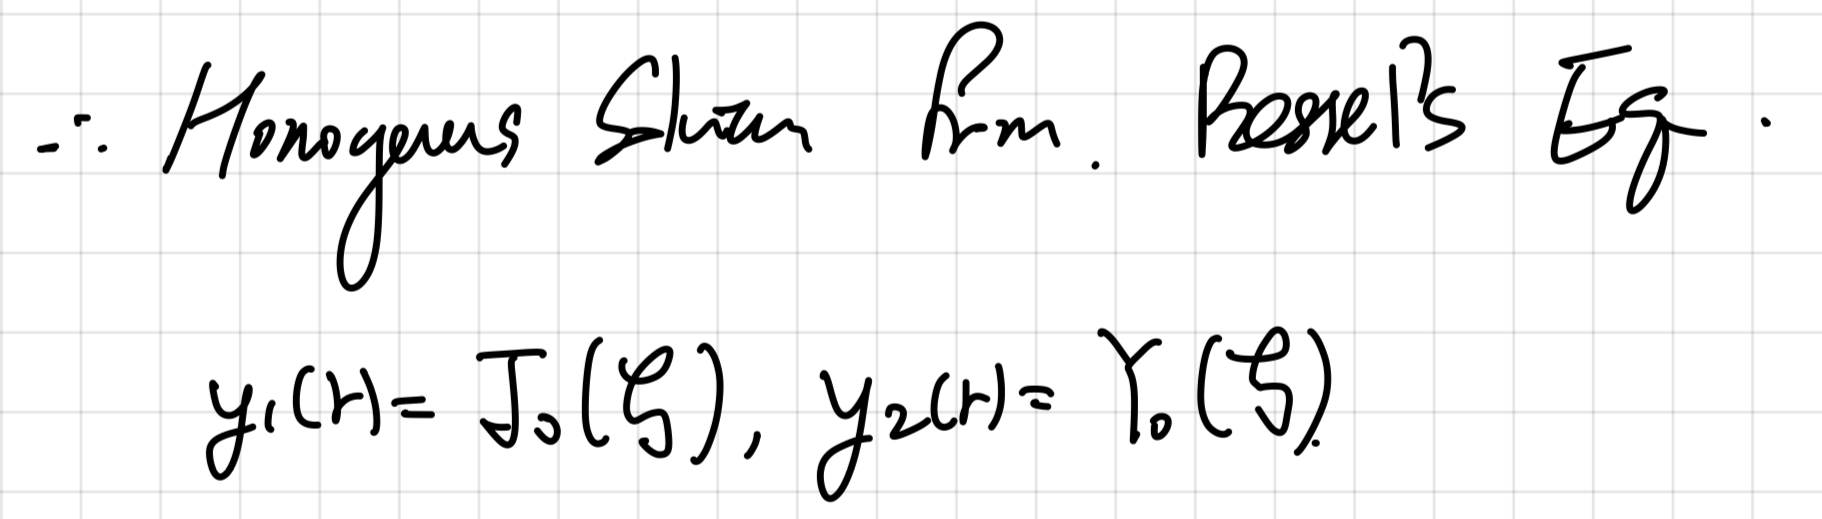 ∴ Homogenus Solution from. Bessel's Eq.
y₁(r) = J₀(ξ), y₂(r) = Y₀(ξ).